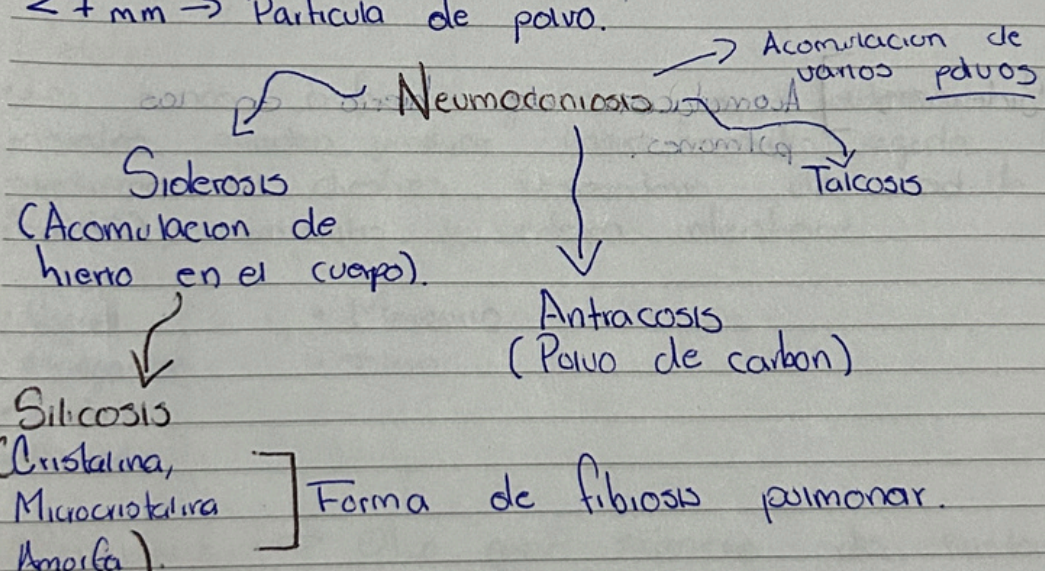 < + mm → Particula de polvo.
Neumoconiosis → Acomulacion de
varios polvos
Siderosis
(Acomulacion de
hierro en el cuerpo).
Talcosis
Antracosis
(Polvo de carbon)
Silicosis
(Cristalina,
Microcristalina
Amorfa).
Forma de fibrosis pulmonar.